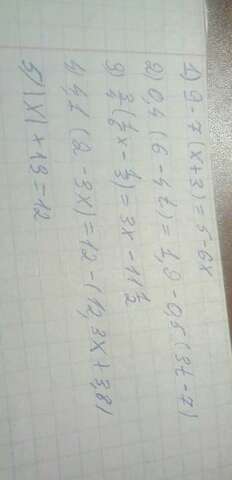 1) 9 - 7 (x + 3) = 5 - 6x
2) 0,4 (6 - 4t) = 1,9 - 0,5 (3t - 7)
3) (x - ) = 3x - 11 1/2
4) 4,1 (2 - 3x) = 12 - (12,3x + 3,8)
5) |x| + 13 = 12